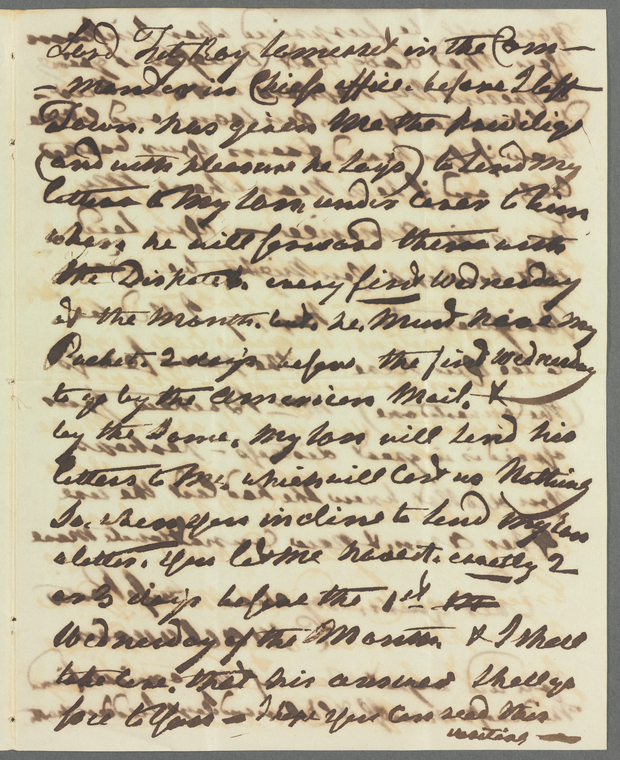 Lord FitzRoy Somerset in the Com–
–mander in Chiefs office. before I left
Town. has given Me the Privilige
(and with pleasure he says) to Send My
letters to My Son, under Cover to him
when he will forward them with
the Dispatch. every first Wednesday
of the Month. but he Must have My
Packet. 2 days before the first Wednesday
to go by the American Mail. &
by the Same. My Son will Send his
letters to Me. which will Cost us Nothing
So, when you incline to Send My Son
a letter. You let Me have it. exactly 2
or 3 days before the 1st
Wednesday of the Month. & I shall
take Care. that his answer Shall go
free to You – I hope You Can read this
writing —